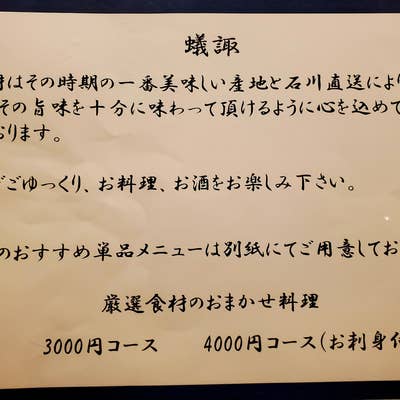 蟻諏
はその時期の一番美味しい産地と石川直送により
その旨味を十分に味わって頂けるように心を込めて
おります。
ごゆっくり、お料理、お酒をお楽しみ下さい。
のおすすめ単品メニューは別紙にてご用意してお
厳選食材のおまかせ料理
3000円コース 4000円コース(お刺身付